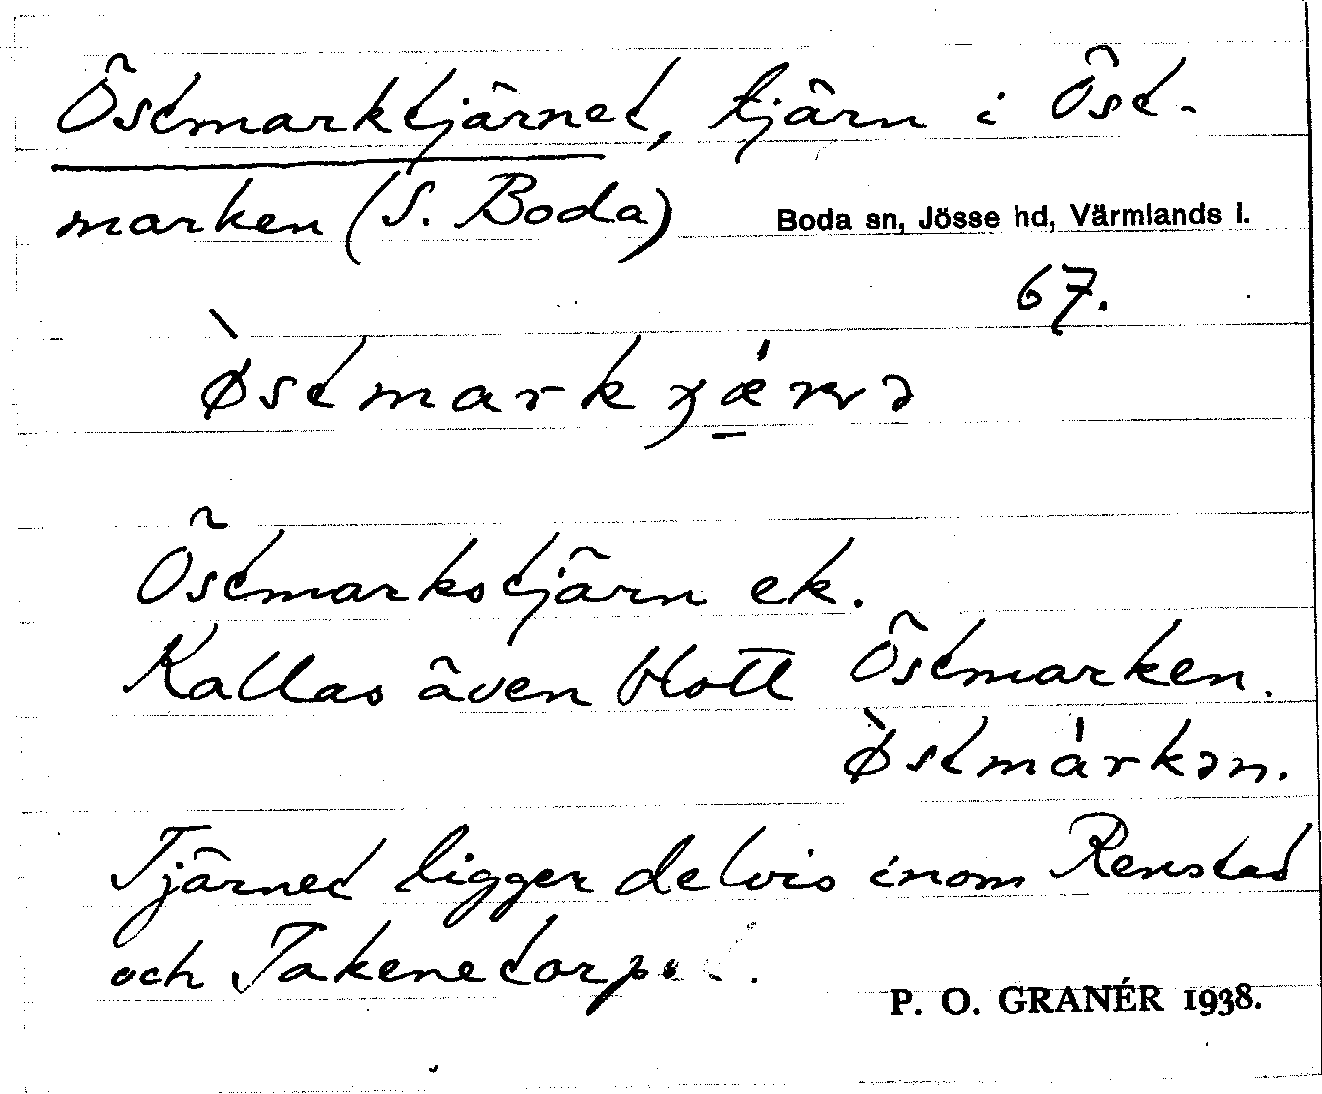 Östmarktjärnet, tjärn i Öst-
marken (S. Boda) Boda sn, Jösse hd, Värmlands l.
67.
Östmarkstjärn ek.
Kallas även blott Östmarken.
Tjärnet ligger delvis inom Renstad
och
P. O. GRANÉR 1938.